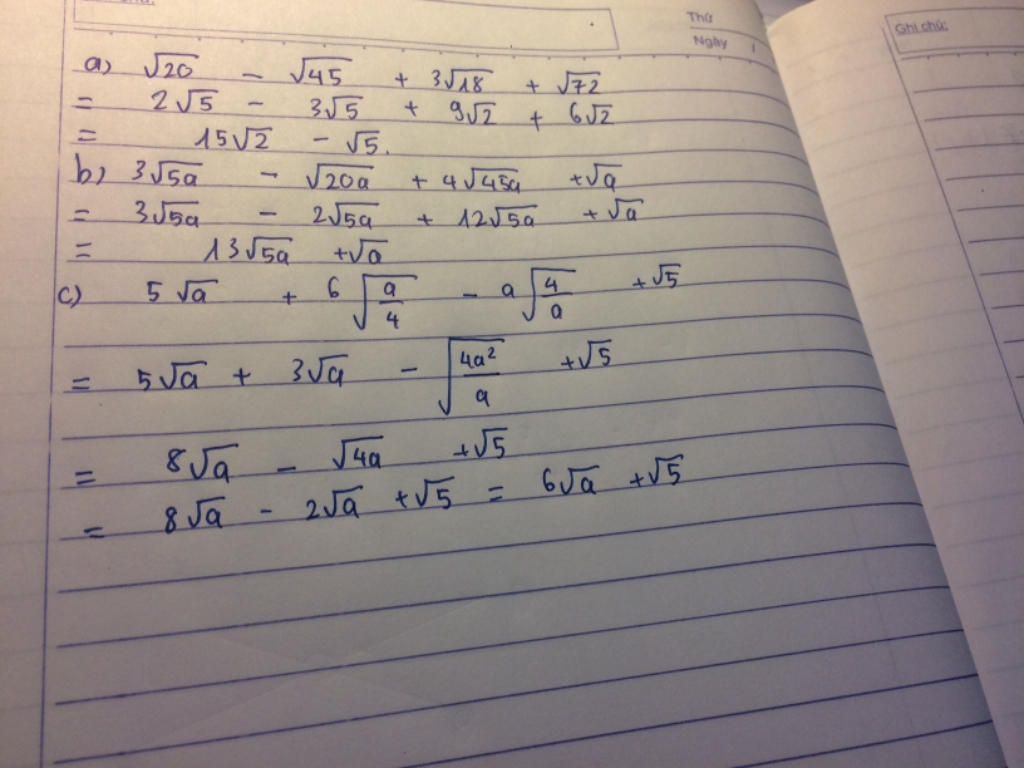 Thứ
Ngày /
Ghi chú:
a) √20 - √45 + 3√18 + √72
= 2√5 - 3√5 + 9√2 + 6√2
= 15√2 - √5.
b) 3√5a - √20a + 4√45a + √a
= 3√5a - 2√5a + 12√5a + √a
= 13√5a + √a
c) 5√a + 6√(a/4) - a√(4/a) + √5
= 5√a + 3√a - √(4a²/a) + √5
= 8√a - √4a + √5
= 8√a - 2√a + √5 = 6√a + √5